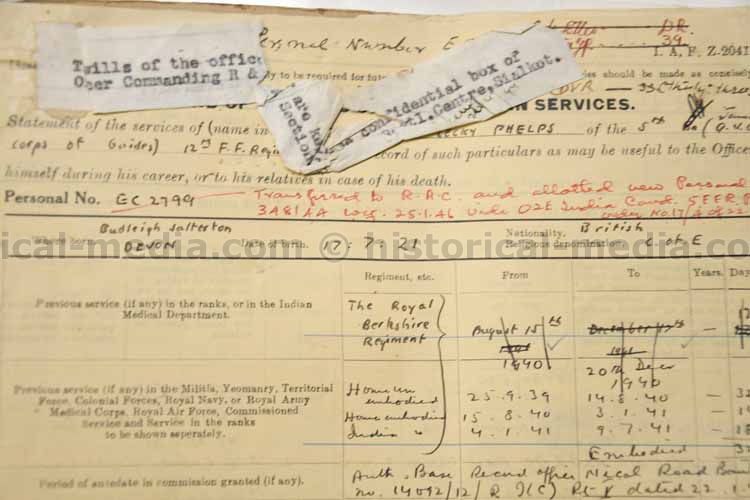 Personal Number
DR
39
I. A. F. Z-2041
Twills of the office
Ocer Commanding R &
are
Section
confidential box of
Centre, Sialkot.
ly to be required for
should be made as concisely
OF
N SERVICES.
Statement of the services of (name in
PHELPS of the 5th
Corps of Guides) 12th F.F. Regi
ecord of such particulars as may be useful to the Office
himself during his career, or to his relatives in case of his death.
Personal No. EC 2799
Transferred to R.A.C. and allotted new Personal
25.1.46 vide India Comd.
under No.
Where born Budleigh Salterton
DEVON
Date of birth. 17.7.21
Nationality, British
Religious denomination, C of E
historical-media.com © historical-media.com
Regiment, etc. From To Years. Day
Previous service (if any) in the ranks, or in the Indian
Medical Department.
The Royal
Berkshire
Regiment
August 15th
1940
20th Decr
1940
Previous service (if any) in the Militia, Yeomanry, Territorial
Force, Colonial Forces, Royal Navy, or Royal Army
Medical Corps, Royal Air Force, Commissioned
Service and Service in the ranks
to be shown seperately.
Home un
embodied 25.9.39 14.8.40
Home embodied 15.8.40 3.1.41
India " 4.1.41 9.7.41
Embodied
Period of antedate in commission granted (if any).
Auth. Base Record office Road
no. 14092/12/ dated 22.